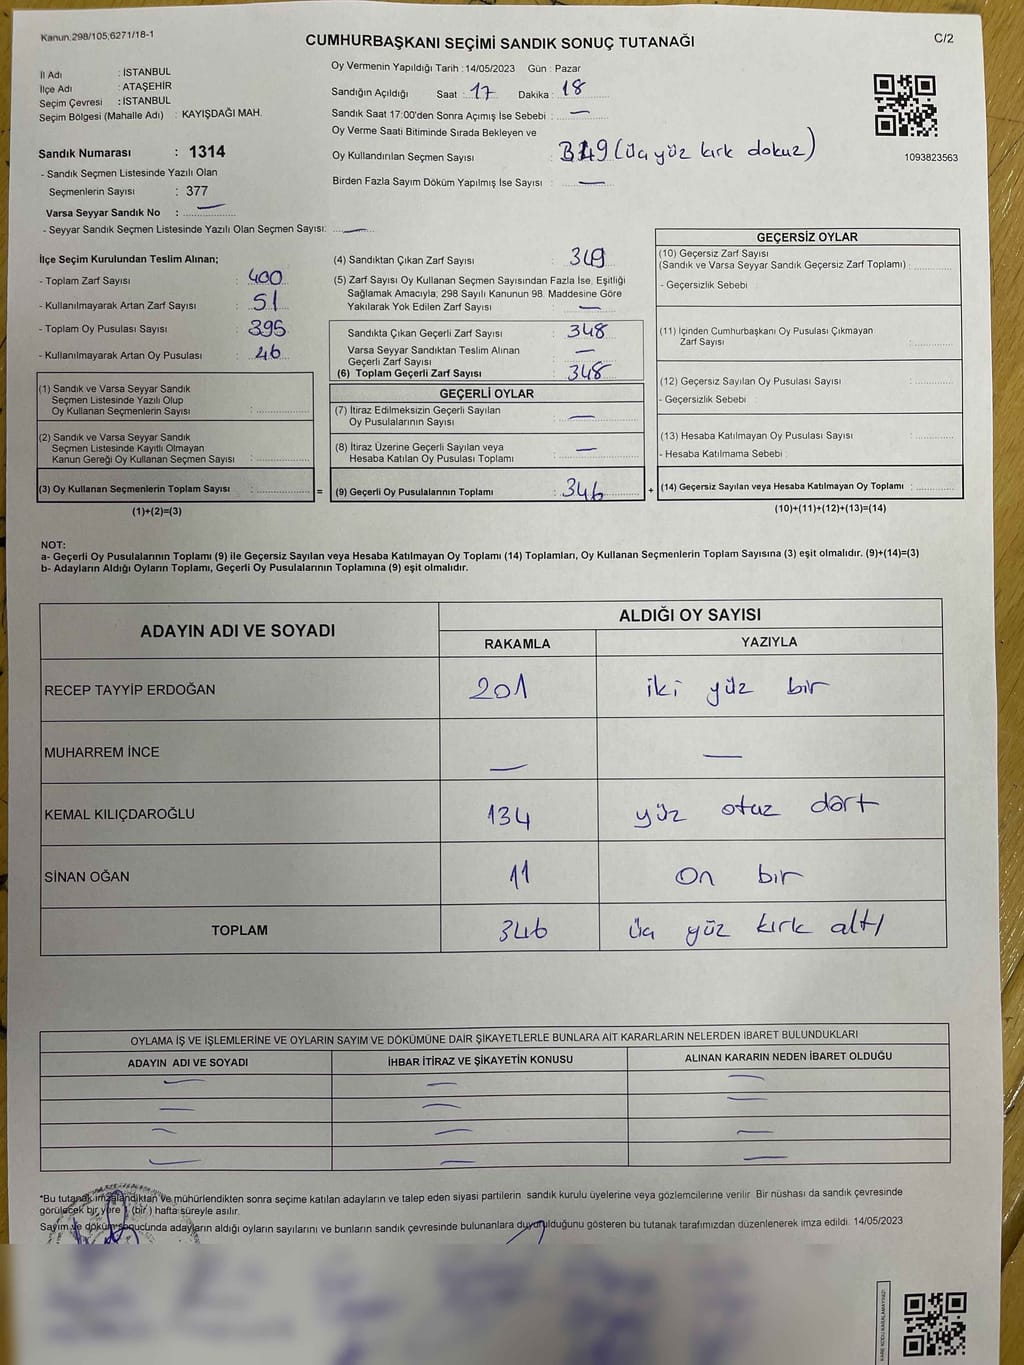 Kanun:298/105;6271/18-1
C/2
CUMHURBAŞKANI SEÇİMİ SANDIK SONUÇ TUTANAĞI
İl Adı : İSTANBUL
İlçe Adı : ATAŞEHİR
Seçim Çevresi : İSTANBUL
Seçim Bölgesi (Mahalle Adı) : KAYIŞDAĞI MAH.
Sandık Numarası : 1314
- Sandık Seçmen Listesinde Yazılı Olan
Seçmenlerin Sayısı : 377
Varsa Seyyar Sandık No : —
- Seyyar Sandık Seçmen Listesinde Yazılı Olan Seçmen Sayısı: —
Oy Vermenin Yapıldığı Tarih :14/05/2023 Gün : Pazar
Sandığın Açıldığı Saat : 17 Dakika : 18
Sandık Saat 17:00'den Sonra Açımış İse Sebebi : —
Oy Verme Saati Bitiminde Sırada Bekleyen ve
Oy Kullandırılan Seçmen Sayısı : 349 (üç yüz kırk dokuz)
Birden Fazla Sayım Döküm Yapılmış İse Sayısı : —
1093823563
İlçe Seçim Kurulundan Teslim Alınan;
- Toplam Zarf Sayısı : 400
- Kullanılmayarak Artan Zarf Sayısı : 51
- Toplam Oy Pusulası Sayısı : 395
- Kullanılmayarak Artan Oy Pusulası : 46
(1) Sandık ve Varsa Seyyar Sandık
Seçmen Listesinde Yazılı Olup
Oy Kullanan Seçmenlerin Sayısı :
(2) Sandık ve Varsa Seyyar Sandık
Seçmen Listesinde Kayıtlı Olmayan
Kanun Gereği Oy Kullanan Seçmen Sayısı :
(3) Oy Kullanan Seçmenlerin Toplam Sayısı : =
(1)+(2)=(3)
(4) Sandıktan Çıkan Zarf Sayısı : 349
(5) Zarf Sayısı Oy Kullanan Seçmen Sayısından Fazla İse, Eşitliği
Sağlamak Amacıyla; 298 Sayılı Kanunun 98. Maddesine Göre
Yakılarak Yok Edilen Zarf Sayısı : —
Sandıkta Çıkan Geçerli Zarf Sayısı : 348
Varsa Seyyar Sandıktan Teslim Alınan
Geçerli Zarf Sayısı : —
(6) Toplam Geçerli Zarf Sayısı : 348
GEÇERLİ OYLAR
(7) İtiraz Edilmeksizin Geçerli Sayılan
Oy Pusulalarının Sayısı : —
(8) İtiraz Üzerine Geçerli Sayılan veya
Hesaba Katılan Oy Pusulası Toplamı : —
(9) Geçerli Oy Pusulalarının Toplamı : 346 +
GEÇERSİZ OYLAR
(10) Geçersiz Zarf Sayısı
(Sandık ve Varsa Seyyar Sandık Geçersiz Zarf Toplamı) :
- Geçersizlik Sebebi :
(11) İçinden Cumhurbaşkanı Oy Pusulası Çıkmayan
Zarf Sayısı :
(12) Geçersiz Sayılan Oy Pusulası Sayısı :
- Geçersizlik Sebebi :
(13) Hesaba Katılmayan Oy Pusulası Sayısı :
- Hesaba Katılmama Sebebi :
(14) Geçersiz Sayılan veya Hesaba Katılmayan Oy Toplamı :
(10)+(11)+(12)+(13)=(14)
NOT:
a- Geçerli Oy Pusulalarının Toplamı (9) ile Geçersiz Sayılan veya Hesaba Katılmayan Oy Toplamı (14) Toplamları, Oy Kullanan Seçmenlerin Toplam Sayısına (3) eşit olmalıdır. (9)+(14)=(3)
b- Adayların Aldığı Oyların Toplamı, Geçerli Oy Pusulalarının Toplamına (9) eşit olmalıdır.
ADAYIN ADI VE SOYADI ALDIĞI OY SAYISI
RAKAMLA YAZIYLA
RECEP TAYYİP ERDOĞAN 201 iki yüz bir
MUHARREM İNCE — —
KEMAL KILIÇDAROĞLU 134 yüz otuz dört
SİNAN OĞAN 11 on bir
TOPLAM 346 üç yüz kırk altı
OYLAMA İŞ VE İŞLEMLERİNE VE OYLARIN SAYIM VE DÖKÜMÜNE DAİR ŞİKAYETLERLE BUNLARA AİT KARARLARIN NELERDEN İBARET BULUNDUKLARI
ADAYIN ADI VE SOYADI İHBAR İTİRAZ VE ŞİKAYETİN KONUSU ALINAN KARARIN NEDEN İBARET OLDUĞU
— — —
— — —
— — —
— — —
*Bu tutanak imzalandıktan ve mühürlendikten sonra seçime katılan adayların ve talep eden siyasi partilerin sandık kurulu üyelerine veya gözlemcilerine verilir. Bir nüshası da sandık çevresinde
görülecek bir yere 1 (bir ) hafta süreyle asılır.
Sayım ve döküm sonucunda adayların aldığı oyların sayılarını ve bunların sandık çevresinde bulunanlara duyurulduğunu gösteren bu tutanak tarafımızdan düzenlenerek imza edildi. 14/05/2023
KARE KODU KARALAMAYINIZ!